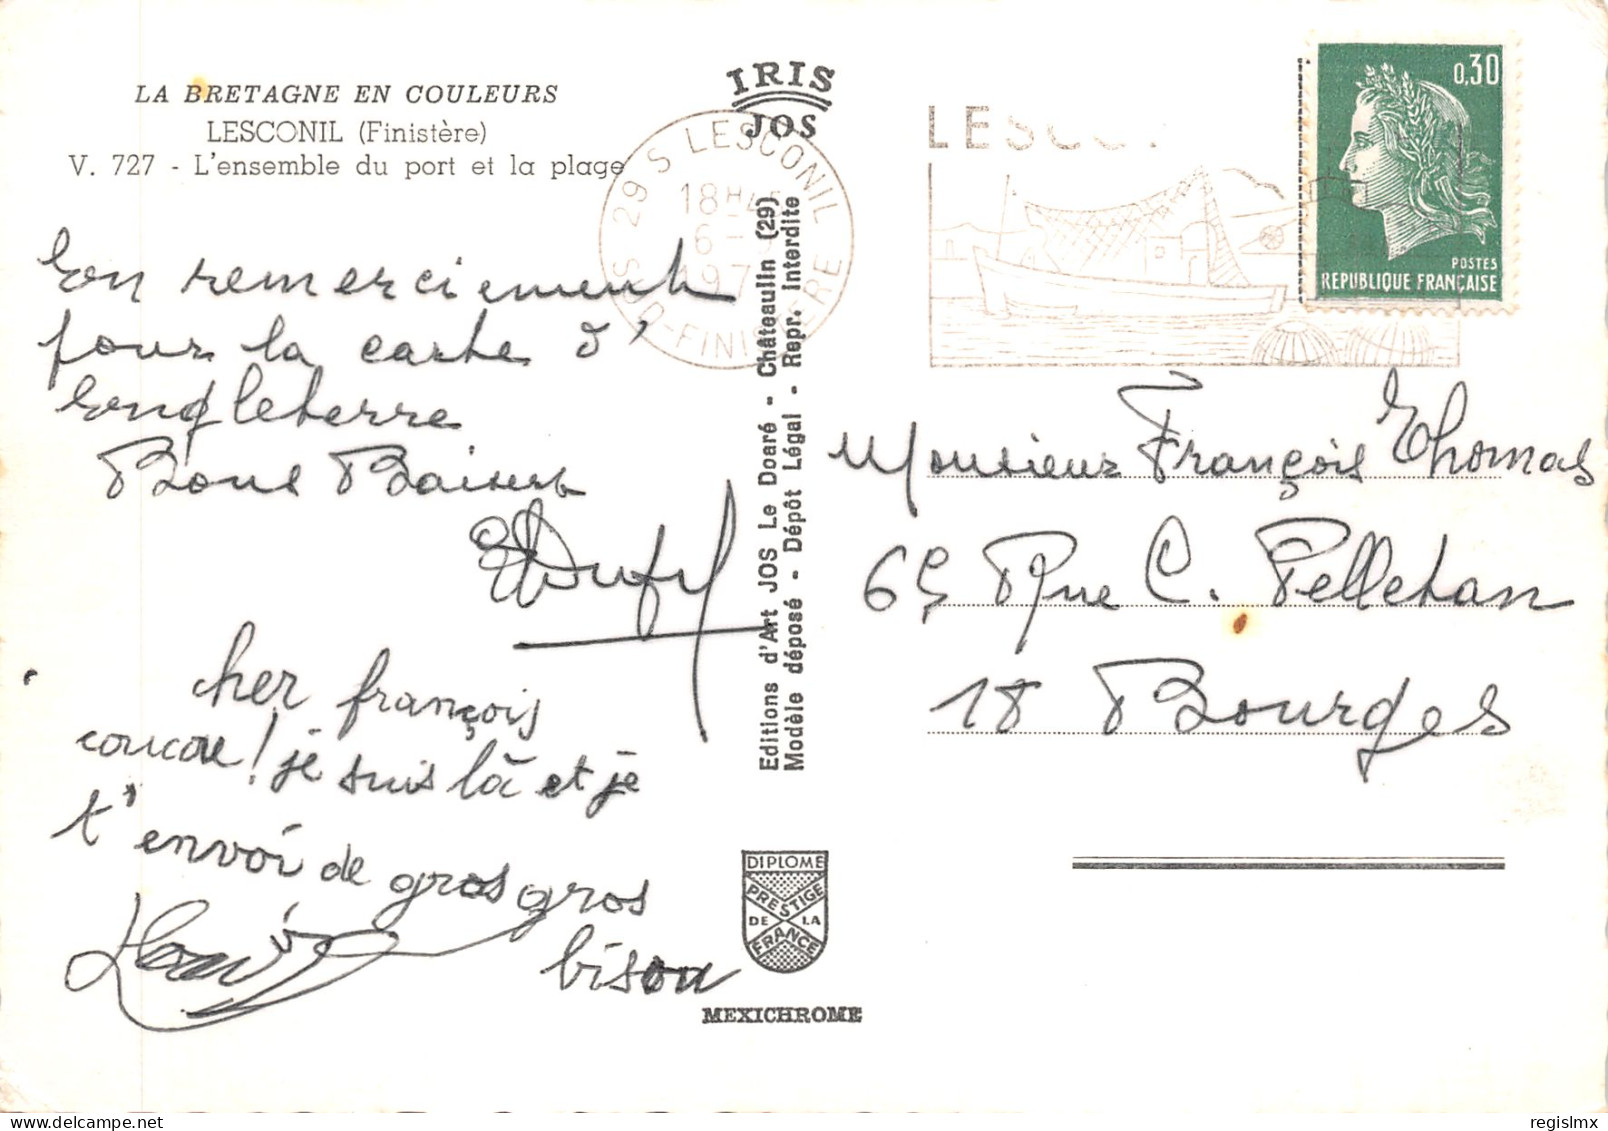 LA BRETAGNE EN COULEURS
LESCONIL (Finistère)
V. 727 - L'ensemble du port et la plage
En remerciement
pour la carte d'
Engleterre
Bons Baisers
cher françois
coucou! je suis là et je
t'envoi de gros gros
bisou
IRIS
JOS
29 S LESCONIL
18H45
6 -
197
SUD-FINISTERE
Editions d'Art JOS Le Doaré - Châteaulin (29)
Modèle déposé - Dépôt Légal - Repr. Interdite
DIPLOME
PRESTIGE
DE LA
FRANCE
MEXICHROME
LESCO
0,30
POSTES
REPUBLIQUE FRANÇAISE
Monsieur François Thomas
65 Rue C. Pelletan
18 Bourges
regislmx